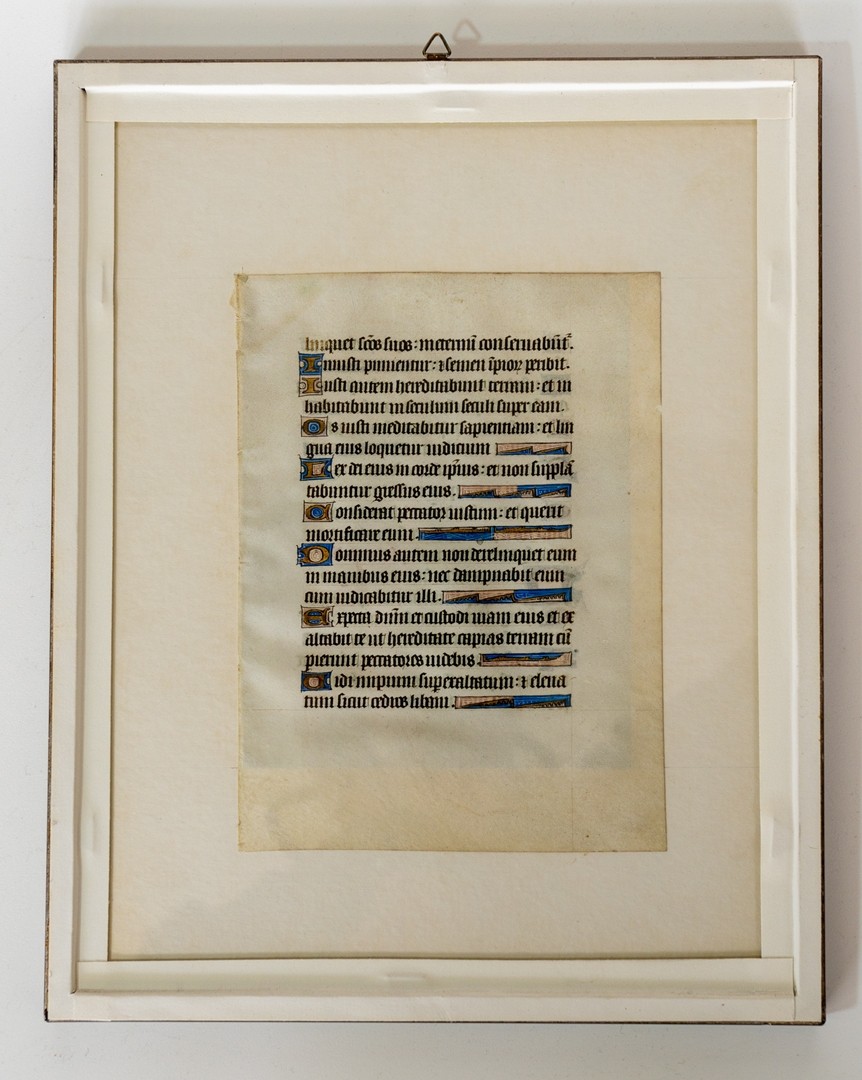 linquet sc̄os suos: ineternū conseruabūt᷑.
Iniusti punientur: ⁊ semen īpioꝝ peribit.
Iusti autem hereditabunt terram: et in
habitabunt in seculum seculi super eam.
Os iusti meditabitur sapientiam: et lin
gua eius loquetur iudicium
Lex dei eius in corde ip̄ius: et non supplā
tabuntur gressus eius.
Considerat peccator iustum: et querit
mortificare eum
Dominus autem non derelinquet eum
in manibus eius: nec dampnabit eum
cum iudicabitur illi.
Expecta dn̄m et custodi uiam eius et ex
altabit te ut hereditate capias terram cū
pierunt peccatores uidebis.
Uidi impium superaltatum: ⁊ eleua
tum sicut cedros libani.